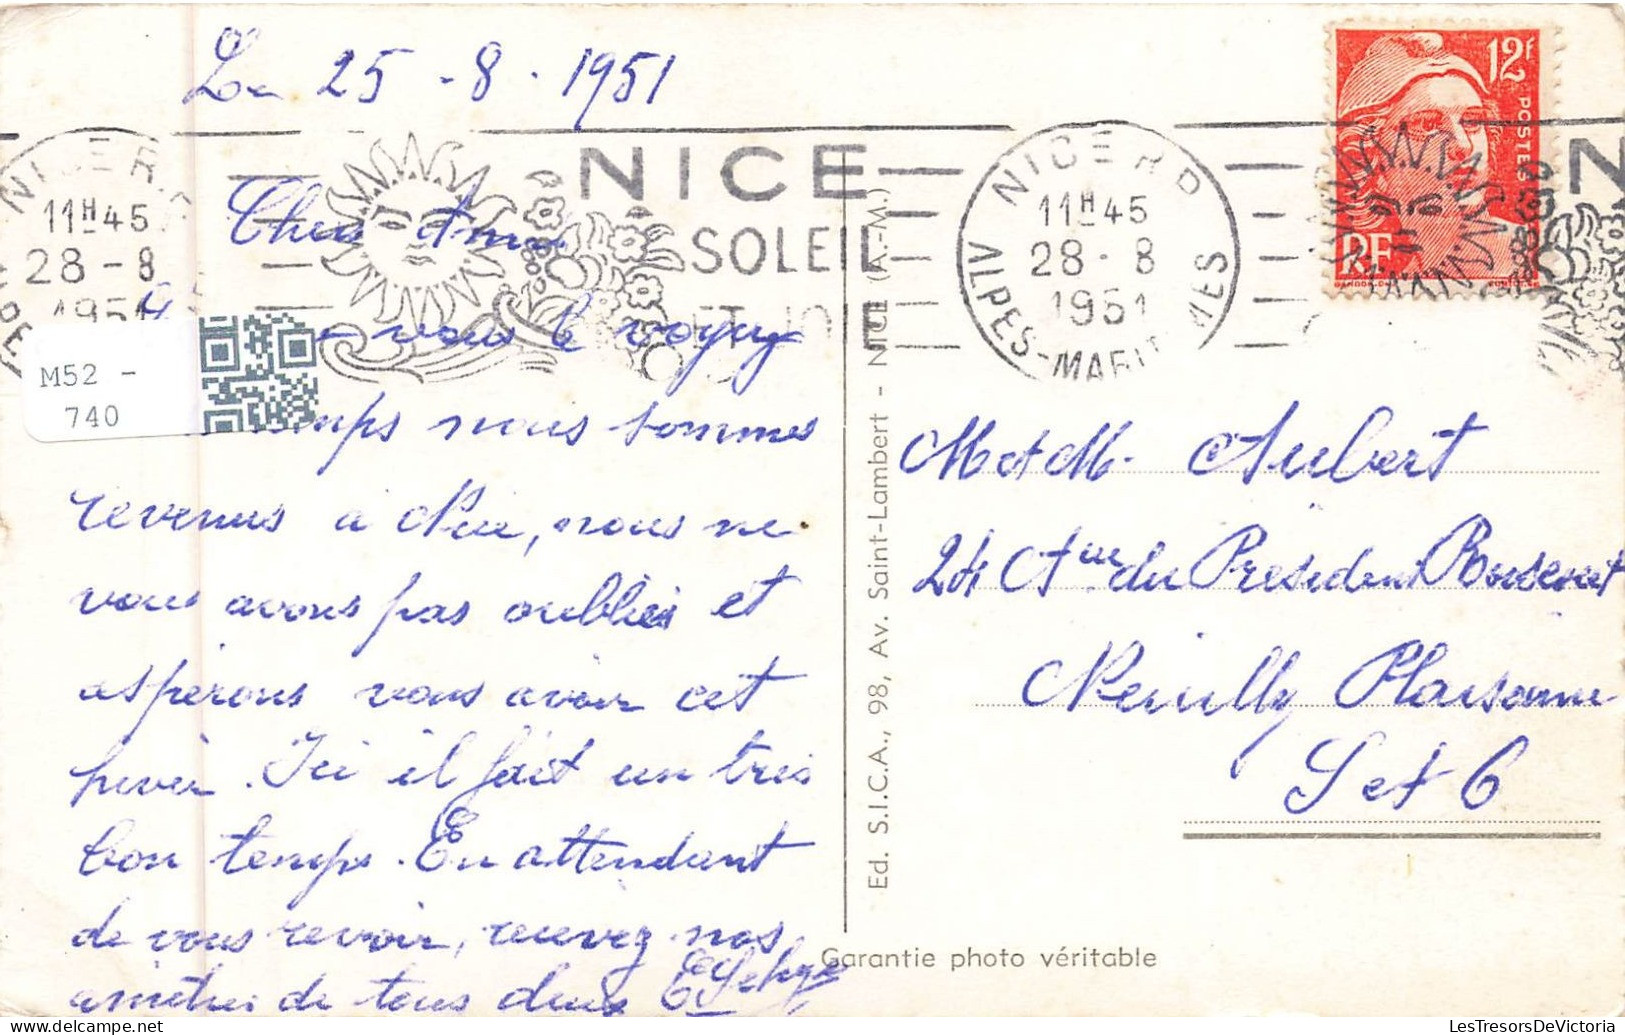 Le 25 - 8 - 1951
NICE
SOLEIL
ET JOIE
NICE R.P.
11H45
28 - 8
1951
NICE R P
11H45
28 - 8
1951
ALPES-MARITIMES
12F
POSTES
RF
N
Chers Amis
vous le voyez
temps nous sommes
revenus à Nice, nous ne
vous avons pas oubliés et
espérons vous avoir cet
hiver. Ici il fait un très
bon temps. En attendant
de vous revoir, recevez nos
amitiés de tous deux
M52 -
740
Ed. S.I.C.A., 98, Av. Saint-Lambert - NICE (A.-M.)
M et Me Aubert
24 Aue du Président Roosevelt
Neuilly Plaisance
S et O
Garantie photo véritable
LesTresorsDeVictoria